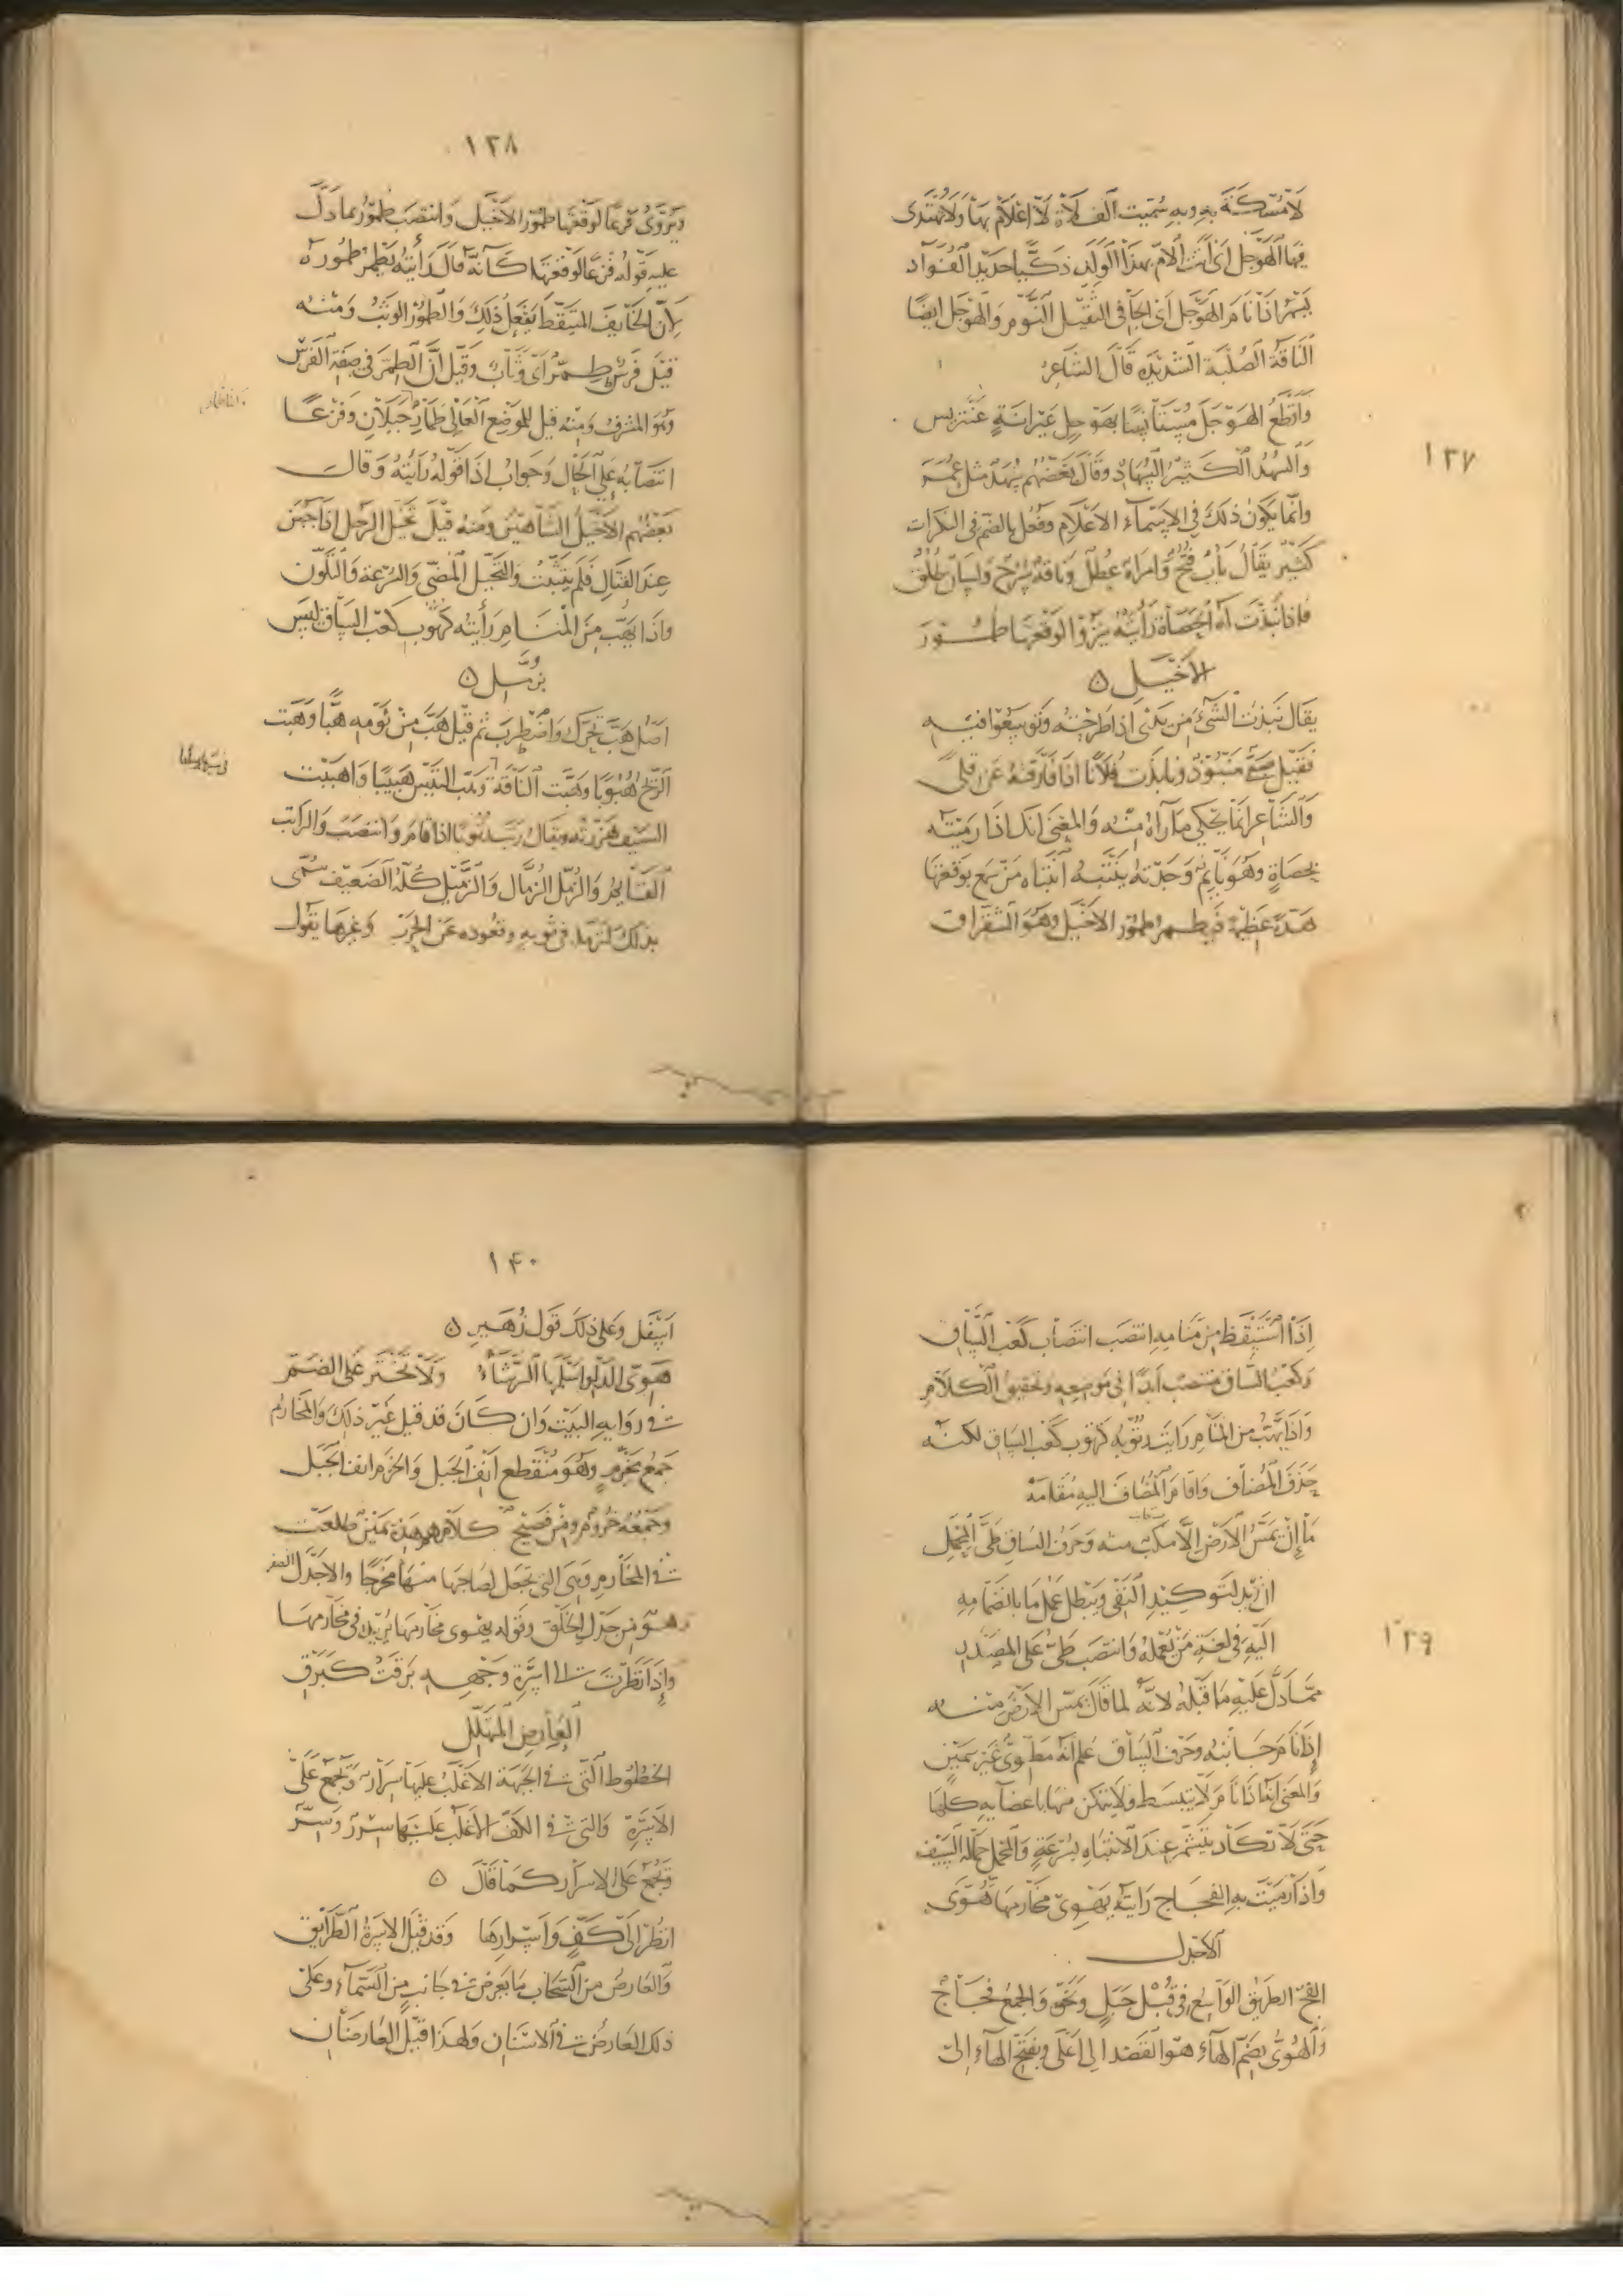 ١٣٧
لا مسكة به وبه سميت الفلاة لا اعلام بها ولا يهتدى
فيها الهوجل اى اتت الام بهذا الولد ذكيا حديد الفواد
يسهر اذا نام الهوجل اى الجافى الثقيل النوم والهوجل ايضا
الناقة الصلبة الشديدة قال الشاعر
واقطع الهوجل مستأنسا بهوجل عيرانة عنتريس
والسهد الكثير السهاد وقال بعضهم سهد مثل عمر
وانما يكون ذلك فى الاسماء الاعلام وفعل بالضم فى النكرات
كثير يقال باب فتح وامراة عطل وناقة سرح ولسان طلق
فاذا نبذت له الحصاة رأيته ينزو لوقعتها طمور
الاخيل ٥
يقال نبذت الشىء من يدى اذا طرحته وتوسعوا فيه
فقيل صبى منبوذ ونابذت فلانا اذا فارقته عن قلى
والشاعر انما يحكى ما رآه منه والمعنى انك اذا رميته
بحصاة وهو نايم وجدته ينتبه انتباه من سمع بوقعتها
هدة عظيمة فيطمر طمور الاخيل وهو الشقراق
١٣٨
ويروى فزعا لوقعتها طمور الاخيل وانتصب طمور بما دل
عليه قوله فزعا لوقعتها كانه قال رأيته يطمر طموره
لان الخايف المتيقظ يفعل ذلك والطمور الوثب ومنه
قيل فرس طمر اى وثاب وقيل ان الطمر فى صفة الفرس
وهو المشرف ومنه قيل للموضع العالى طمار جبلان وفزعا
انتصابه على الحال وجواب اذا قوله رأيته وقال
بعضهم الاخيل الشاهين ومنه قيل تخيل الرجل اذا جبن
عند القتال فلم يتثبت والتخيل المضى والسرعة والتلون
واذا يهب من المنام رأيته كرتوب كعب الساق ليس
بزمل ٥
اصل هب تحرك واضطرب ثم قيل هب من نومه هبا وهبت
الريح هبوبا وهبت الناقة وهب التيس هبيبا واهببت
السيف هززته ويقال رتب رتوبا اذا قام وانتصب والراتب
القايم والزمل الزمال والزميل كله الضعيف سمى
بذلك لتزمله فى ثوبه وقعوده عن الحرب وغيرها يقول
١٣٩
اذا استيقظ من منامه انتصب انتصاب كعب الساق
وكعب الساق منتصب ابدا فى موضعه وتحقيق الكلام
واذا يهب من المنام رايت رتوبه كرتوب كعب الساق لكنه
حذف المضاف واقام المضاف اليه مقامه
ما ان يمس الارض الا منكب منه وحرف الساق طى المحمل
ان زيد لتوكيد النفى ويبطل عمل ما بانضمامه
اليه فى لغة من يعمله وانتصب طى على المصدر
مما دل عليه ما قبله لانه لما قال يمس الارض منه
اذا نام جانبه وحرف الساق علم انه مطوى غير سمين
والمعنى انه اذا نام لا ينبسط ولا يتمكن منها باعضايه كلها
حتى لا تكاد يتشمر عند الانتباه بسرعة والمحمل حمالة السيف
واذا رميت به الفجاج رايته يهوى مخارمها هوى
الاجدل
الفج الطريق الواسع فى قبل جبل ونحوه والجمع فجاج
والهوى بضم الهاء هو القصد الى اعلى وبفتح الهاء الى
١٤٠
اسفل وعلى ذلك قول زهير ٥
هوى الدلو اسلمها الرشاء ولا تختر على الضم
فى روايه البيت وان كان قد قيل غير ذلك والمخارم
جمع مخرم وهو منقطع انف الجبل والخرم انف الجبل
وجمعه خروم ومن فصيح كلامهم هذه يمين طلعت
فى المخارم وهى التى تجعل لصاحبها منها مخرجا والاجدل الصقر
هو من جدل الخلق وقوله يهوى مخارمها يريد فى مخارمها
واذا نظرت الى اسرة وجهه برقت كبرق
العارض المتهلل
الخطوط التى فى الجبهة الاغلب عليها سرار وتجمع على
الاسرة والتى فى الكف الاغلب عليها سرر وسر
وتجمع على الاسرار كما قال ٥
انظر الى كف واسرارها وقد قيل الاسرة الطرايق
والعارض من السحاب ما يعرض فى جانب من السماء وعلى
ذلك العارض فى الاسنان ولهذا قيل العارضان